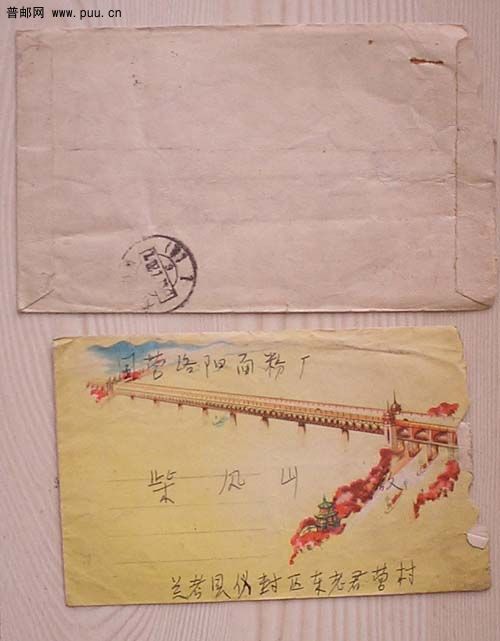 普邮网 www.puu.cn
国营洛阳面粉厂
柴凤山 收
兰考县仪封区东老君营村